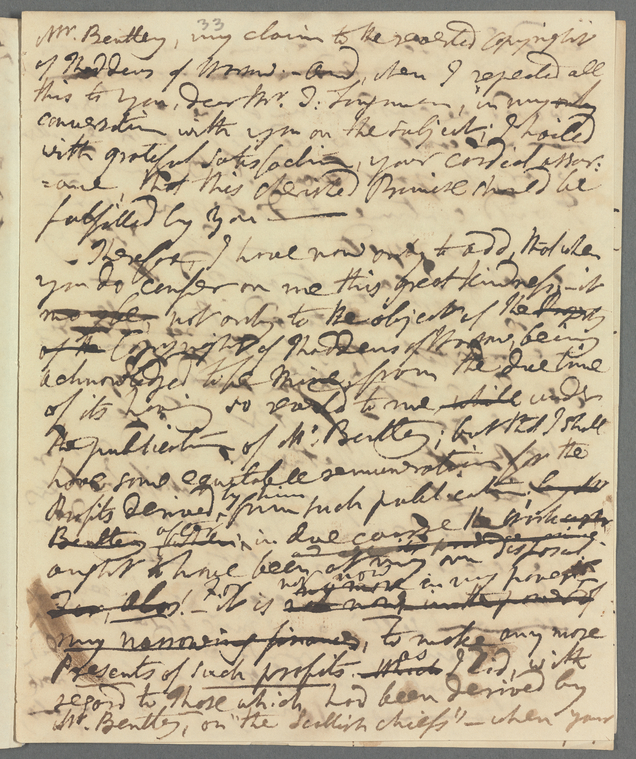 33
Mr. Bentley, my claim to the reverted Copyright
of Thaddeus of Warsaw. And, when I repeated all
this to you, dear Mr. T: Longman, in my only
conversation with you on the subject, I hailed
with grateful satisfaction, your cordial assur:
=ance, that this cherished Promise should be
fulfilled by you
Therefore, I have now only to add, that when
you do confer on me this great kindness, – it
not only to the object of the
of the Copyright of Thaddeus of Warsaw, being
acknowledged to be mine, from the due time
of its having so reverted to me while under
the publication of Mr. Bentley; but that I shall
have some equitable remuneration for the
Profits derived, by him from such publication.
Bentley in due course the work
ought to have been at my own disposal.
For, alas! – it is now in my power to
my narrowing finances, to make any more
Presents of such profits. as I did, with
regard to those which had been derived by
Mr. Bentley, on "the Scottish Chiefs" – when your